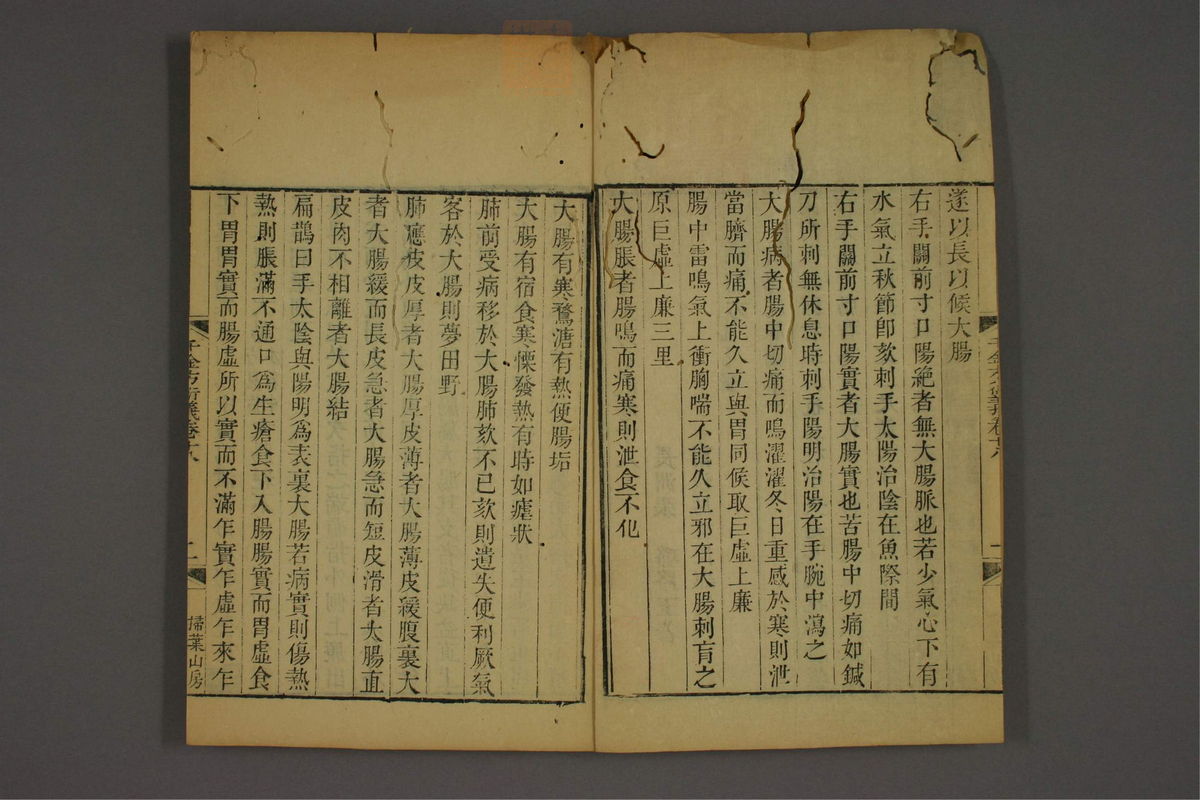 遂以長以候大腸
右手關前寸口陽絶者無大腸脈也若少氣心下有
水氣立秋節卽欬刺手太陽治陰在魚際間
右手關前寸口陽實者大腸實也苦腸中切痛如鍼
刀所刺無休息時刺手陽明治陽在手腕中瀉之
大腸病者腸中切痛而鳴濯濯冬日重感於寒則泄
當臍而痛不能久立與胃同候取巨虛上廉
腸中雷鳴氣上衝胸喘不能久立邪在大腸刺肓之
原巨虛上廉三里
大腸脹者腸鳴而痛寒則泄食不化
大腸有寒鶩溏有熱便腸垢
大腸有宿食寒慄發熱有時如瘧狀
肺前受病移於大腸肺欬不已欬則遺失便利厥氣
客於大腸則夢田野
肺應皮皮厚者大腸厚皮薄者大腸薄皮緩腹裏大
者大腸緩而長皮急者大腸急而短皮滑者大腸直
皮肉不相離者大腸結
扁鵲曰手太陰與陽明爲表裏大腸若病實則傷熱
熱則脹滿不通口爲生瘡食下入腸腸實而胃虛食
下胃胃實而腸虛所以實而不滿乍實乍虛乍來乍
千金方衍義卷十八
二
掃葉山房